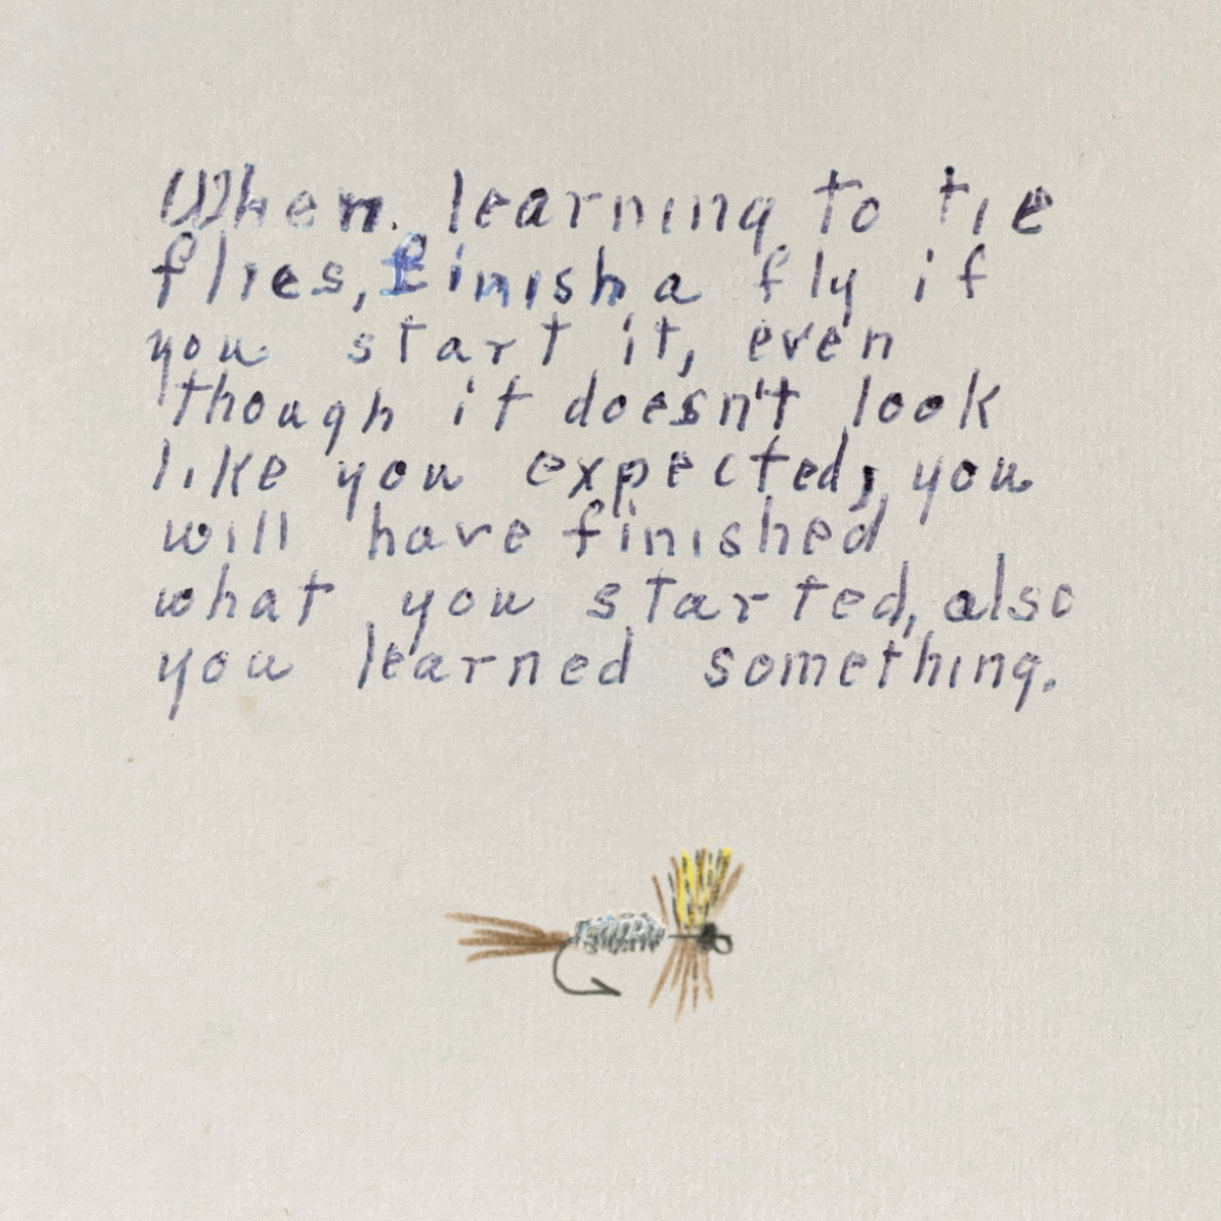 When learning to tie
flies, finish a fly if
you start it, even
though it doesn't look
like you expected, you
will have finished
what you started, also
you learned something.